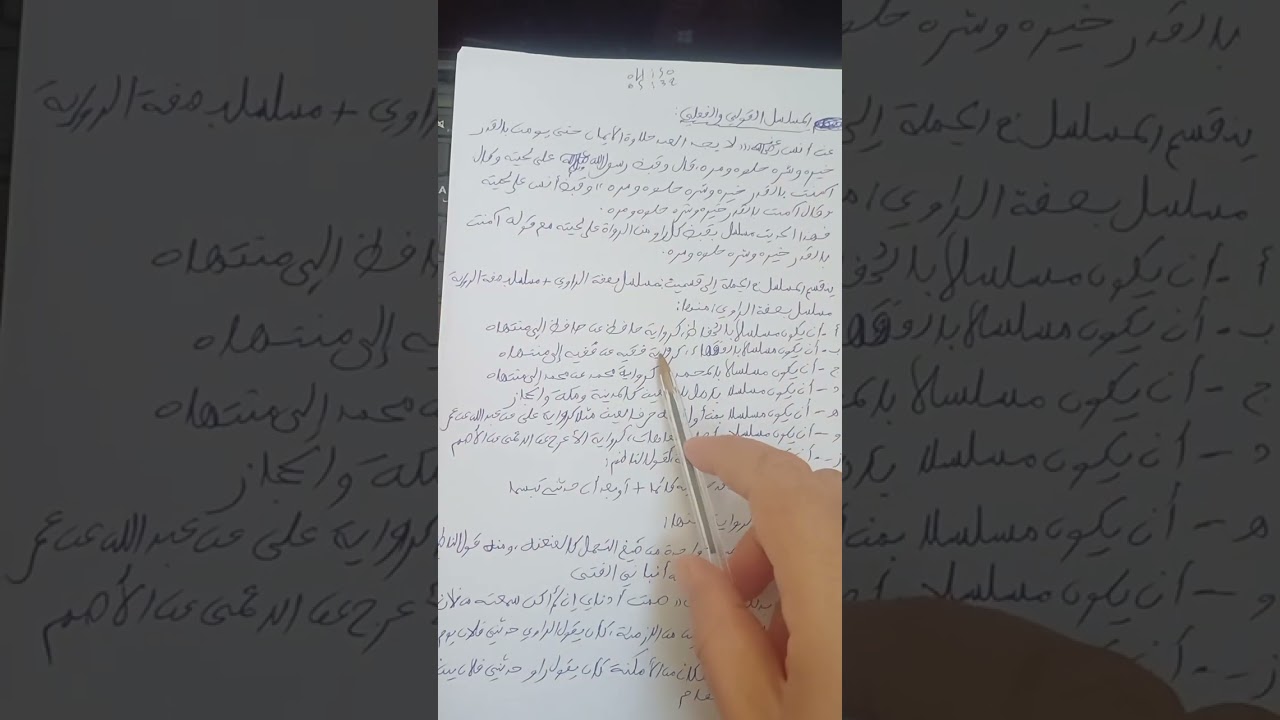 المسلسل القولي والفعلي:
عن أنس لا يجد العبد حلاوة الإيمان حتى يومن بالقدر
خيره وشره حلوه ومره، قال وقبض رسول الله ﷺ على لحيته وقال
آمنت بالقدر خيره وشره حلوه ومره" وقبض أنس على لحيته
وقال آمنت بالقدر خيره وشره حلوه ومره.
فهذا الحديث مسلسل بقبض كل راو من الرواة على لحيته مع قوله آمنت
بالقدر خيره وشره حلوه ومره.
ينقسم المسلسل في الجملة إلى قسمين: مسلسل بصفة الراوي + مسلسل بصفة الرواية
مسلسل بصفة الراوي: منها:
أ - أن يكون مسلسلا بالحفاظ، كرواية حافظ عن حافظ إلى منتهاه
ب - أن يكون مسلسلا بالفقهاء، كرواية فقيه عن فقيه إلى منتهاه
ج - أن يكون مسلسلا بالمحمد كرواية محمد عن محمد إلى منتهاه
د - أن يكون مسلسلا كالمدينة ومكة والحجاز
هـ - أن يكون مسلسلا بمن أول حرف العين مثلا كرواية علي عن عبد الله عن عمر
و - أن يكون مسلسلا كرواية الأعرج عن الدمشقي عن الأصم
ز - كقول الناظم:
قائما + أو بعد أن حدثني تبسما
الرواية منها:
واحدة من صيغ التحمل كالعنعنة، ومنه قول الناظم
أنباني الفتى
صمت أذناي إن لم أكن سمعته من فلان
من الأزمنة، كأن يقول الراوي حدثني فلان يوم
من الأمكنة كأن يقول راو حدثني فلان ببيت